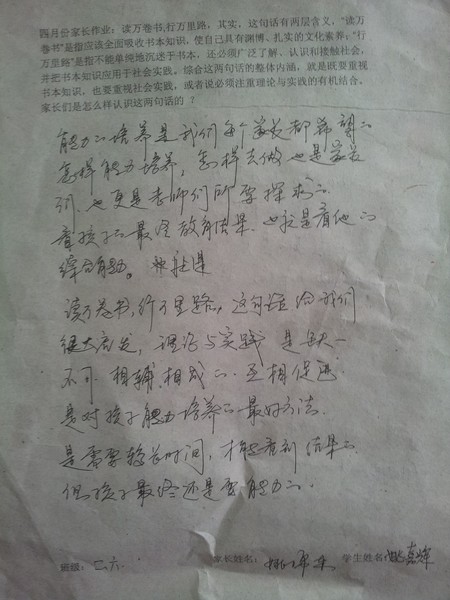 四月份家长作业：读万卷书,行万里路，其实，这句话有两层含义，"读万
卷书"是指应该全面吸收书本知识，使自己具有渊博、扎实的文化素养；"行
万里路"是指不能单纯地沉迷于书本，还必须广泛了解、认识和接触社会，
并把书本知识应用于社会实践。综合这两句话的整体内涵，就是既要重视
书本知识，也要重视社会实践，或者说必须注重理论与实践的有机结合。
家长们是怎么样认识这两句话的？
能力的培养是我们每个家长都希望的
怎样能力培养，怎样去做也是家长
们，也更是老师们所要探求的
看孩子的最终教育结果，也就是看他的
综合能力。
读万卷书,行万里路，这句话给我们
很大启发，理论与实践是缺一
不可，相辅相成的，互相促进，
是对孩子能力培养的最好方法
是需要较长时间，才能看到结果的
但孩子最终还是要能力的.
班级：二六 家长姓名： 学生姓名